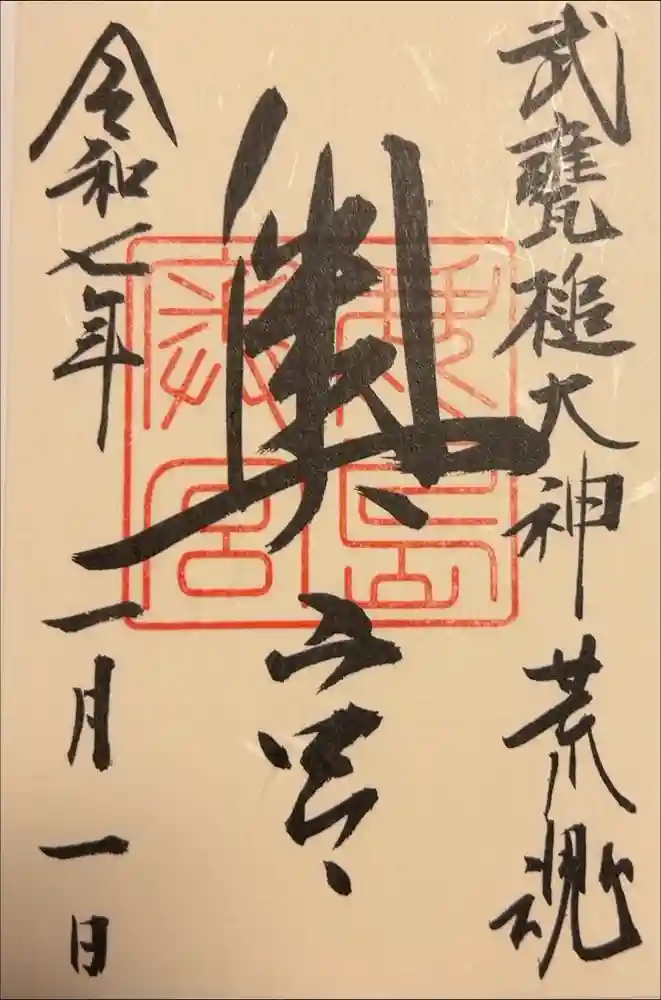 武甕槌大神荒魂
奥宮
鹿島奥宮
令和七年一月一日